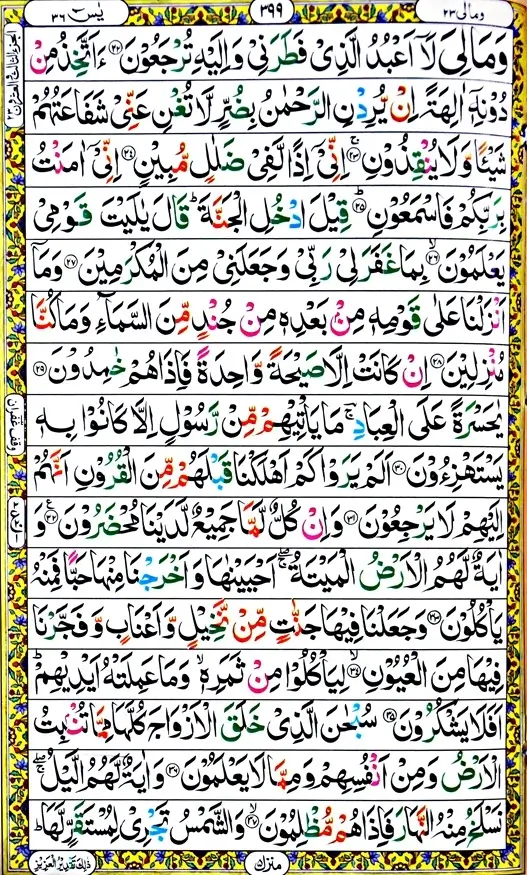 ومالی ۲۳
۳۹۹
یٰسٓ ۳۶
وَمَا لِیَ لَاۤ اَعْبُدُ الَّذِیْ فَطَرَنِیْ وَاِلَیْهِ تُرْجَعُوْنَ ۲۲ ءَاَتَّخِذُ مِنْ
دُوْنِهٖۤ اٰلِهَةً اِنْ یُّرِدْنِ الرَّحْمٰنُ بِضُرٍّ لَّا تُغْنِ عَنِّیْ شَفَاعَتُهُمْ
شَیْـًٔا وَّلَا یُنْقِذُوْنِ ۚ۲۳ اِنِّیْۤ اِذًا لَّفِیْ ضَلٰلٍ مُّبِیْنٍ ۲۴ اِنِّیْۤ اٰمَنْتُ
بِرَبِّكُمْ فَاسْمَعُوْنِ ؕ۲۵ قِیْلَ ادْخُلِ الْجَنَّةَ ؕ قَالَ یٰلَیْتَ قَوْمِیْ
یَعْلَمُوْنَ ۙ۲۶ بِمَا غَفَرَ لِیْ رَبِّیْ وَجَعَلَنِیْ مِنَ الْمُكْرَمِیْنَ ۲۷ وَمَاۤ
اَنْزَلْنَا عَلٰی قَوْمِهٖ مِنْۢ بَعْدِهٖ مِنْ جُنْدٍ مِّنَ السَّمَآءِ وَمَا كُنَّا
مُنْزِلِیْنَ ۲۸ اِنْ كَانَتْ اِلَّا صَیْحَةً وَّاحِدَةً فَاِذَا هُمْ خٰمِدُوْنَ ۲۹
یٰحَسْرَةً عَلَی الْعِبَادِ ۚؔ مَا یَاْتِیْهِمْ مِّنْ رَّسُوْلٍ اِلَّا كَانُوْا بِهٖ
یَسْتَهْزِءُوْنَ ۳۰ اَلَمْ یَرَوْا كَمْ اَهْلَكْنَا قَبْلَهُمْ مِّنَ الْقُرُوْنِ اَنَّهُمْ
اِلَیْهِمْ لَا یَرْجِعُوْنَ ۳۱ وَاِنْ كُلٌّ لَّمَّا جَمِیْعٌ لَّدَیْنَا مُحْضَرُوْنَ ۳۲ وَ
اٰیَةٌ لَّهُمُ الْاَرْضُ الْمَیْتَةُ ۖۚ اَحْیَیْنٰهَا وَاَخْرَجْنَا مِنْهَا حَبًّا فَمِنْهُ
یَاْكُلُوْنَ ۳۳ وَجَعَلْنَا فِیْهَا جَنّٰتٍ مِّنْ نَّخِیْلٍ وَّاَعْنَابٍ وَّفَجَّرْنَا
فِیْهَا مِنَ الْعُیُوْنِ ۙ۳۴ لِیَاْكُلُوْا مِنْ ثَمَرِهٖ ۙ وَمَا عَمِلَتْهُ اَیْدِیْهِمْ ؕ
اَفَلَا یَشْكُرُوْنَ ۳۵ سُبْحٰنَ الَّذِیْ خَلَقَ الْاَزْوَاجَ كُلَّهَا مِمَّا تُنْۢبِتُ
الْاَرْضُ وَمِنْ اَنْفُسِهِمْ وَمِمَّا لَا یَعْلَمُوْنَ ۳۶ وَاٰیَةٌ لَّهُمُ الَّیْلُ ۖۚ
نَسْلَخُ مِنْهُ النَّهَارَ فَاِذَا هُمْ مُّظْلِمُوْنَ ۙ۳۷ وَالشَّمْسُ تَجْرِیْ لِمُسْتَقَرٍّ لَّهَا ؕ
منزل
ذٰلِكَ تَقْدِیْرُ الْعَزِیْزِ